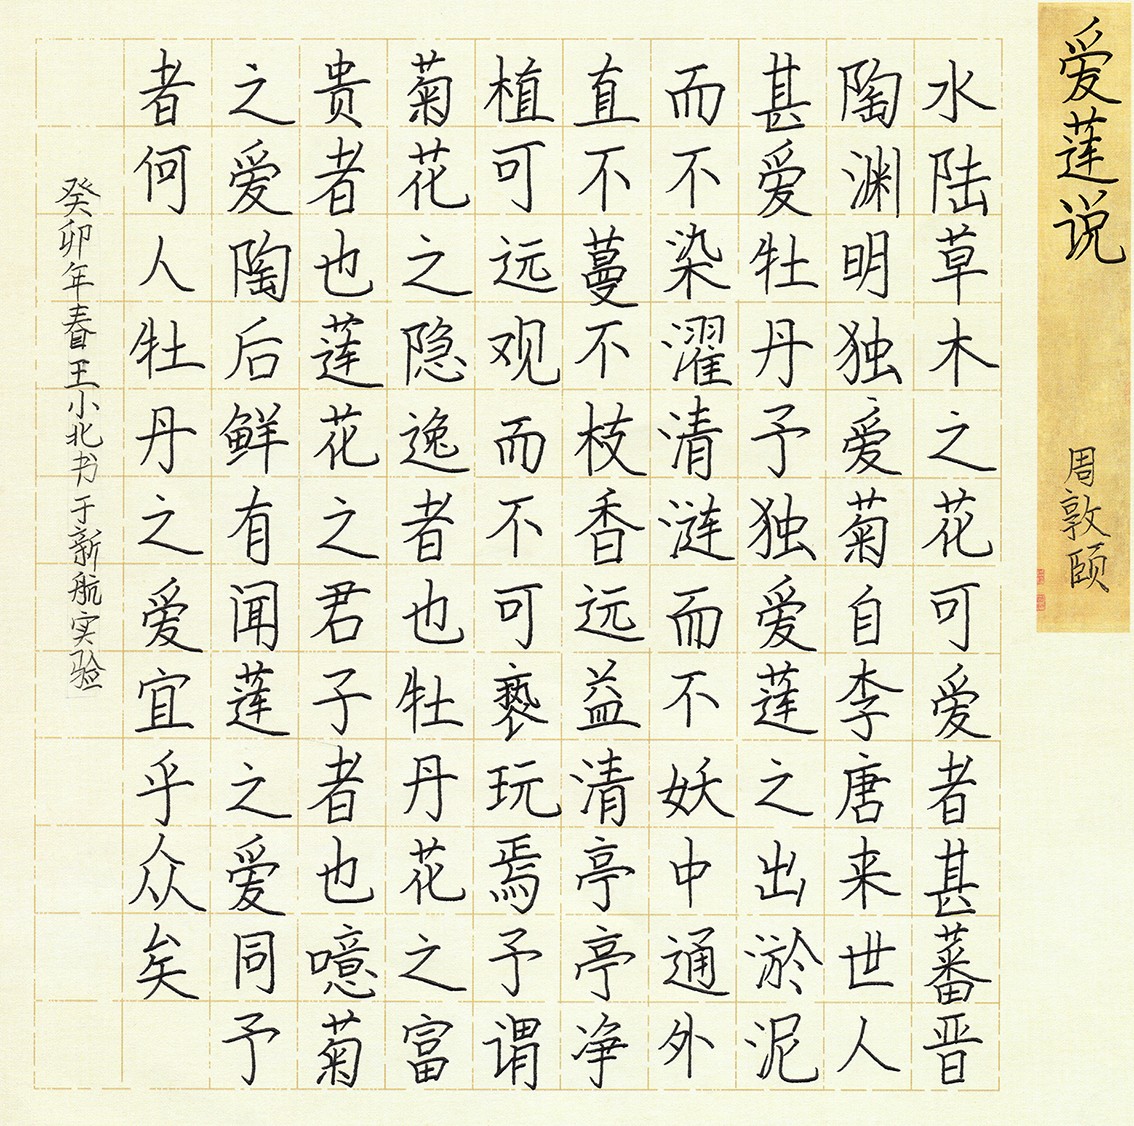 爱莲说
周敦颐
水陆草木之花可爱者甚蕃晋
陶渊明独爱菊自李唐来世人
甚爱牡丹予独爱莲之出淤泥
而不染濯清涟而不妖中通外
直不蔓不枝香远益清亭亭净
植可远观而不可亵玩焉予谓
菊花之隐逸者也牡丹花之富
贵者也莲花之君子者也噫菊
之爱陶后鲜有闻莲之爱同予
者何人牡丹之爱宜乎众矣
癸卯年春王小北书于新航实验